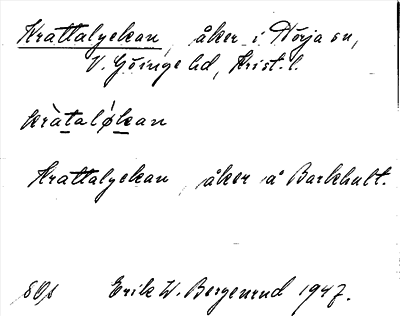 Krattalyckan, åker i Nörja sn,
V. Göinge hd, Krist. l.
kràtalǿkan
Krattalyckan, åker å Barkhult.
Erik W. Bergenrud 1947.